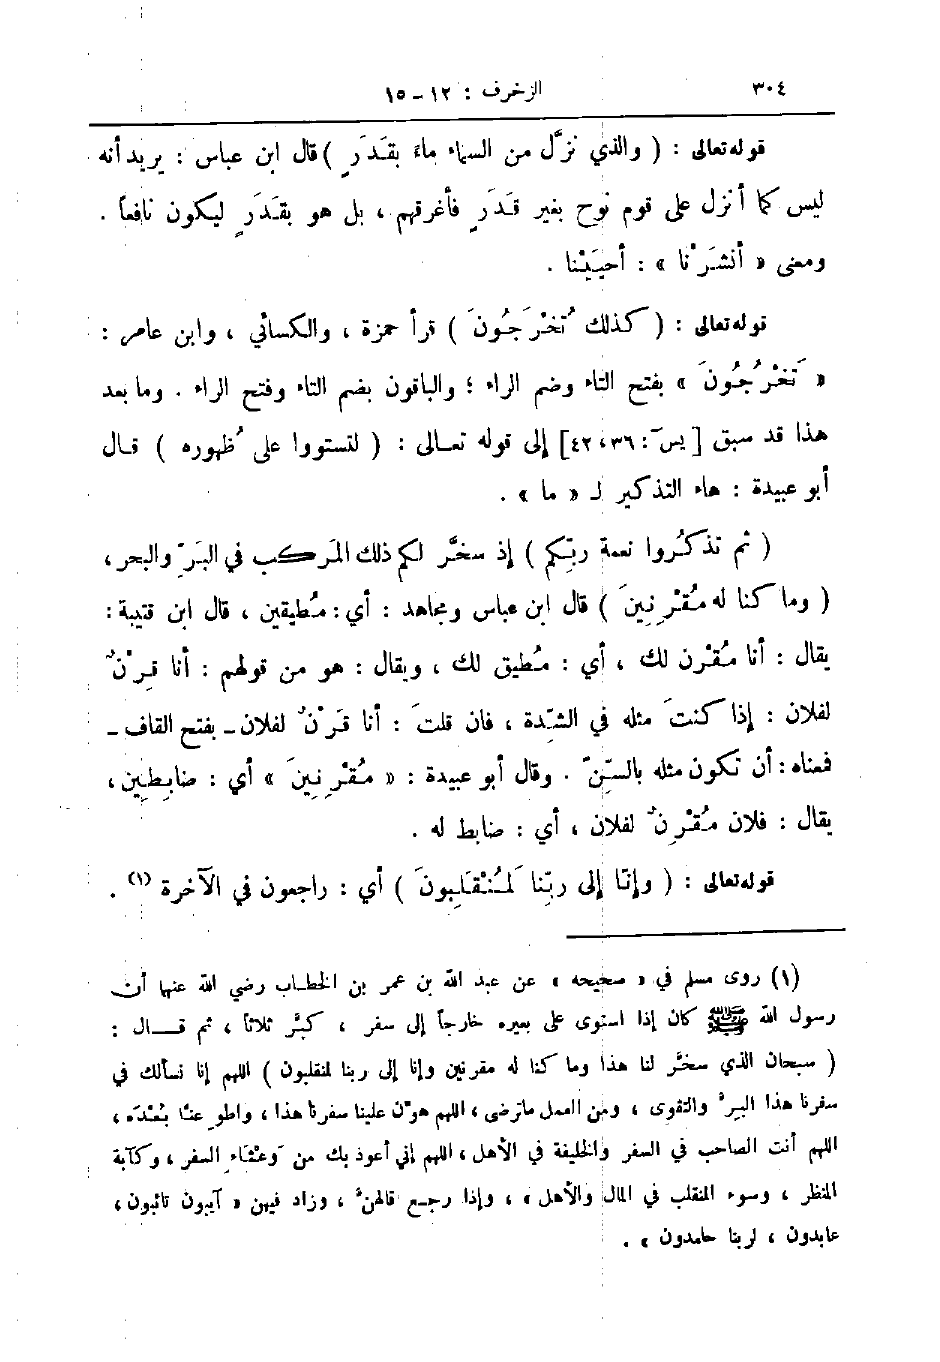 ٣٠٤
الزخرف : ١٢ – ١٥
قوله تعالى : ( والذي نزَّل من السماء ماءً بقَدَرٍ ) قال ابن عباس : يريد أنه
ليس كما أنزل على قوم نوح بغير قَدَرٍ فأغرقهم ، بل هو بقَدَرٍ ليكون نافعاً .
ومعنى « أنشَرْنا » : أحيَيْنا .
قوله تعالى : ( كذلك تُخْرَجُونَ ) قرأ حمزة ، والكسائي ، وابن عامر :
« تَخْرُجُونَ » بفتح التاء وضم الراء ؛ والباقون بضم التاء وفتح الراء . وما بعد
هذا قد سبق [ يسۤ : ٣٦ ، ٤٢ ] إلى قوله تعـالى : ( لتستووا على ظُهوره ) قـال
أبو عبيدة : هاء التذكير لـ « ما » .
( ثم تذكُروا نعمة ربِّكم ) إذ سخَّر لكم ذلك المَركب في البَرِّ والبحر ،
( وما كنا له مُقْرِنِينَ ) قال ابن عباس ومجاهد : أي : مُطيقين ، قال ابن قتيبة :
يقال : أنا مُقْرن لك ، أي : مُطيق لك ، ويقال : هو من قولهم : أنا قِرْنٌ
لفلان : إذا كنتَ مثله في الشِّدة ، فان قلتَ : أنا قَرْنٌ لفلان ـ بفتح القاف ـ
فمعناه : أن تكون مثله بالسِّنّ . وقال أبو عبيدة : « مُقْرِنِينَ » أي : ضابِطِين ،
يقال : فلان مُقْرِنٌ لفلان ، أي : ضابط له .
قوله تعالى : ( وإنّا إلى ربِّنا لَمُنْقَلِبونَ ) أي : راجعون في الآخرة (١) .
(١) روى مسلم في « صحيحه » عن عبد الله بن عمر بن الخطاب رضي الله عنهما أن
رسول الله ﷺ كان إذا استوى على بعيره خارجاً إلى سفر ، كبَّر ثلاثاً ، ثم قـــال :
( سبحان الذي سخَّر لنا هذا وما كنا له مقرنين وإنا إلى ربنا لمنقلبون ) اللهم إنا نسألك في
سفرنا هذا البرَّ والتقوى ، ومن العمل ماترضى ، اللهم هوِّن علينا سفرنا هذا ، واطوِ عنّا بُعْدَه ،
اللهم أنت الصاحب في السفر والخليفة في الأهل ، اللهم إني أعوذ بك من وَعْثاء السفر ، وكآبة
المنظر ، وسوء المنقلب في المال والأهل » ، وإذا رجـع قالهنَّ ، وزاد فيهن « آيبون تائبون ،
عابدون ، لربنا حامدون » .